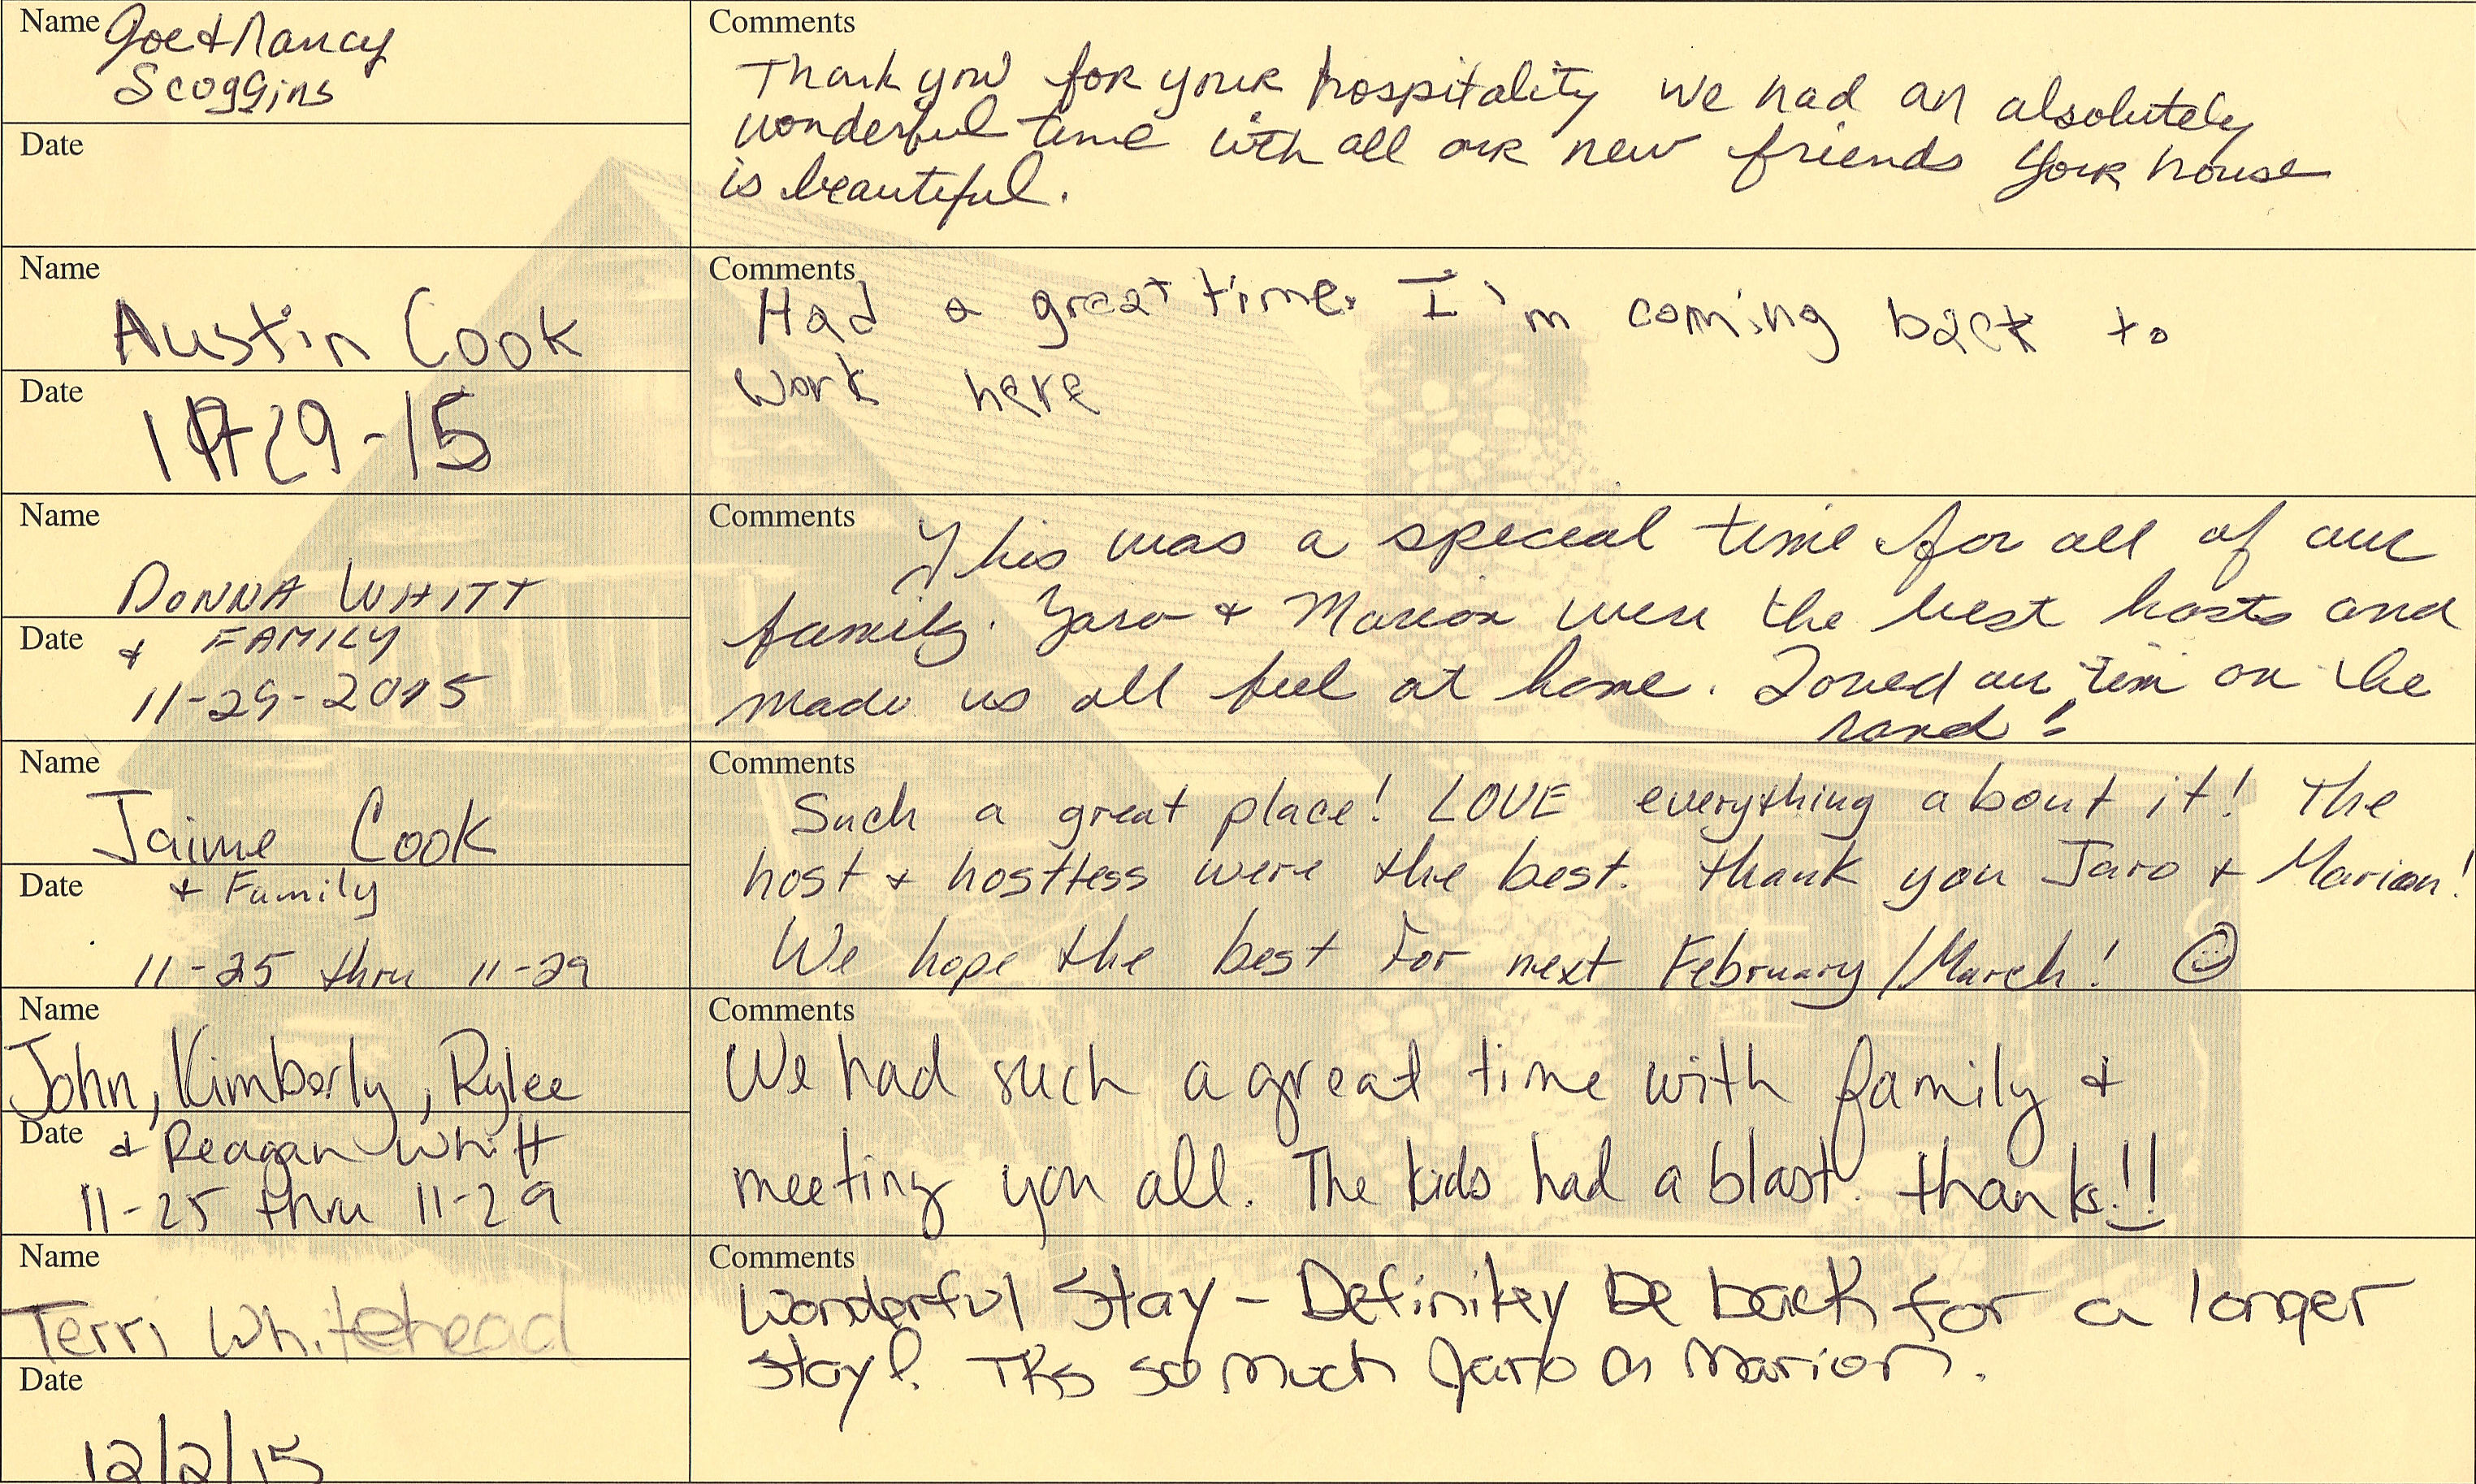 Name Joe & Nancy
Scoggins
Date
Comments
Thank you for your hospitality we had an absolutely
wonderful time with all our new friends Your house
is beautiful.
Name
Austin Cook
Date
29-15
Comments
Had a great time. I'm coming back to
work here
Name
DONNA WHITT
Date & FAMILY
11-29-2015
Comments This was a special time for all of our
family. Yaro & Marion were the best hosts and
made us all feel at home. Loved our time on the
sand!
Name
Jaime Cook
Date & Family
11-25 thru 11-29
Comments
Such a great place! LOVE everything about it! The
host & hosttess were the best. Thank you Jaro & Marion!
We hope the best for next February/March! ☺
Name
John, Kimberly, Rylee
Date & Reagan Whitt
11-25 thru 11-29
Comments
We had such a great time with family &
meeting you all. The kids had a blast. thanks!!
Name
Terri Whitehead
Date
12/2/15
Comments
Wonderful Stay - Definitey be back for a longer
stay! Tks so much Jaro & Marion.